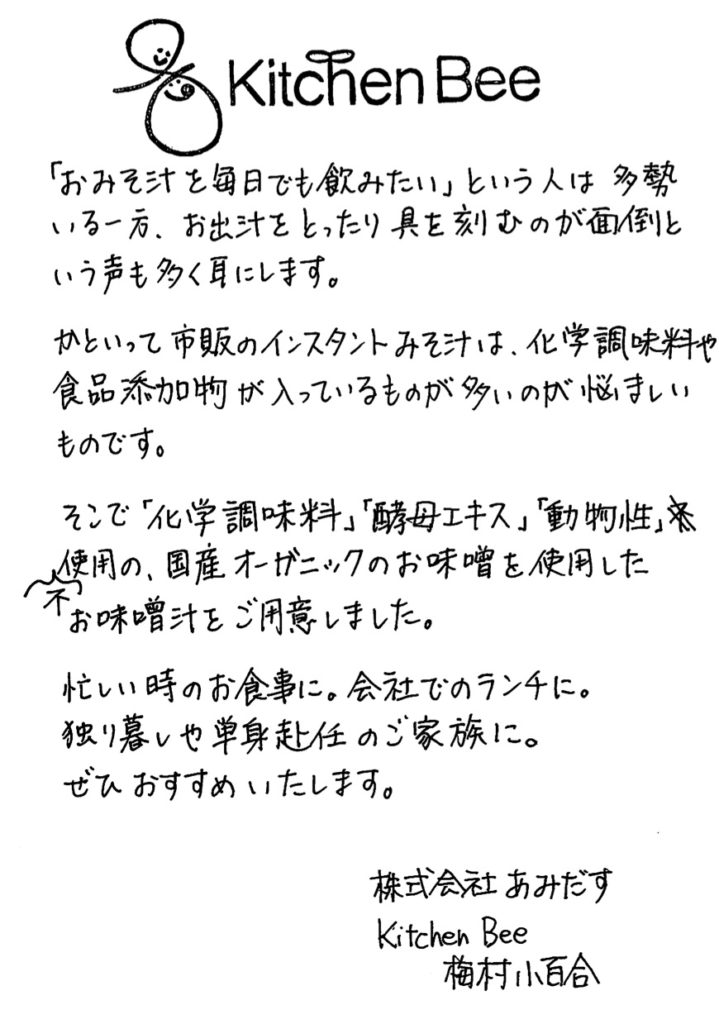 Kitchen Bee
「おみそ汁を毎日でも飲みたい」という人は多勢
いる一方、お出汁をとったり具を刻むのが面倒と
いう声も多く耳にします。
かといって市販のインスタントみそ汁は、化学調味料や
食品添加物が入っているものが多いのが悩ましい
ものです。
そこで「化学調味料」「酵母エキス」「動物性」
不使用の、国産オーガニックのお味噌を使用した
お味噌汁をご用意しました。
忙しい時のお食事に。会社でのランチに。
独り暮しや単身赴任のご家族に。
ぜひおすすめいたします。
株式会社あみだす
Kitchen Bee
梅村小百合